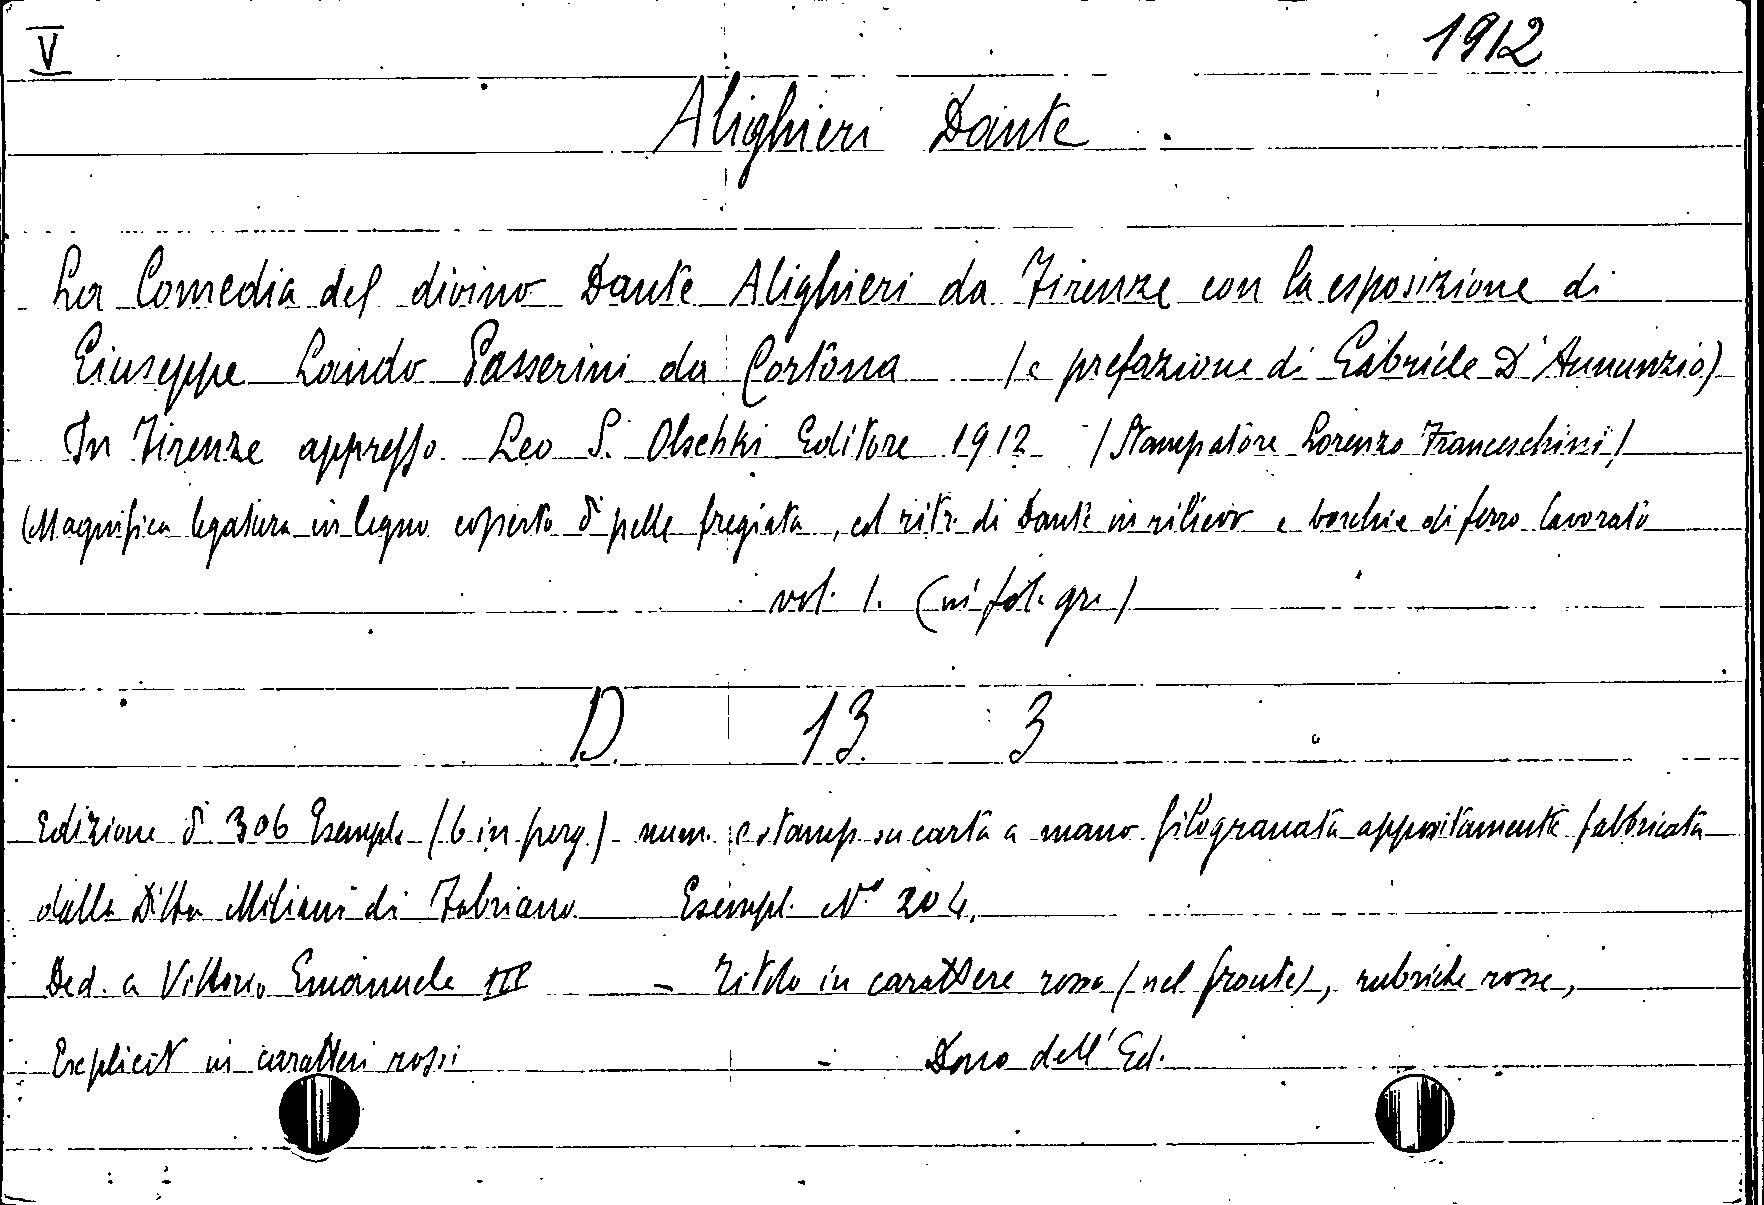 V 1912
Alighieri Dante
La Comedia del divino Dante Alighieri da Firenze con la esposizione di
Giuseppe Lando Passerini da Cortona (e prefazione di Gabriele D'Annunzio)
In Firenze appresso Leo S. Olschki Editore 1912 (Stampatore Lorenzo Franceschini)
(Magnifica legatura in legno coperto di pelle fregiata, ed ritr. di Dante in rilievo e borchie di ferro lavorato
vol. 1. (in fol. gr.)
D. 13. 3
Edizione di 306 Esempl. (6 in perg.) num. e stamp. su carta a mano filogranata appositamente fabbricata
dalla Ditta Miliani di Fabriano Esempl. N.º 204.
Ded. a Vittorio Emanuele III - Titolo in carattere rosso (nel fronte), rubriche rosse,
Explicit in caratteri rossi - Dono dell'Ed.